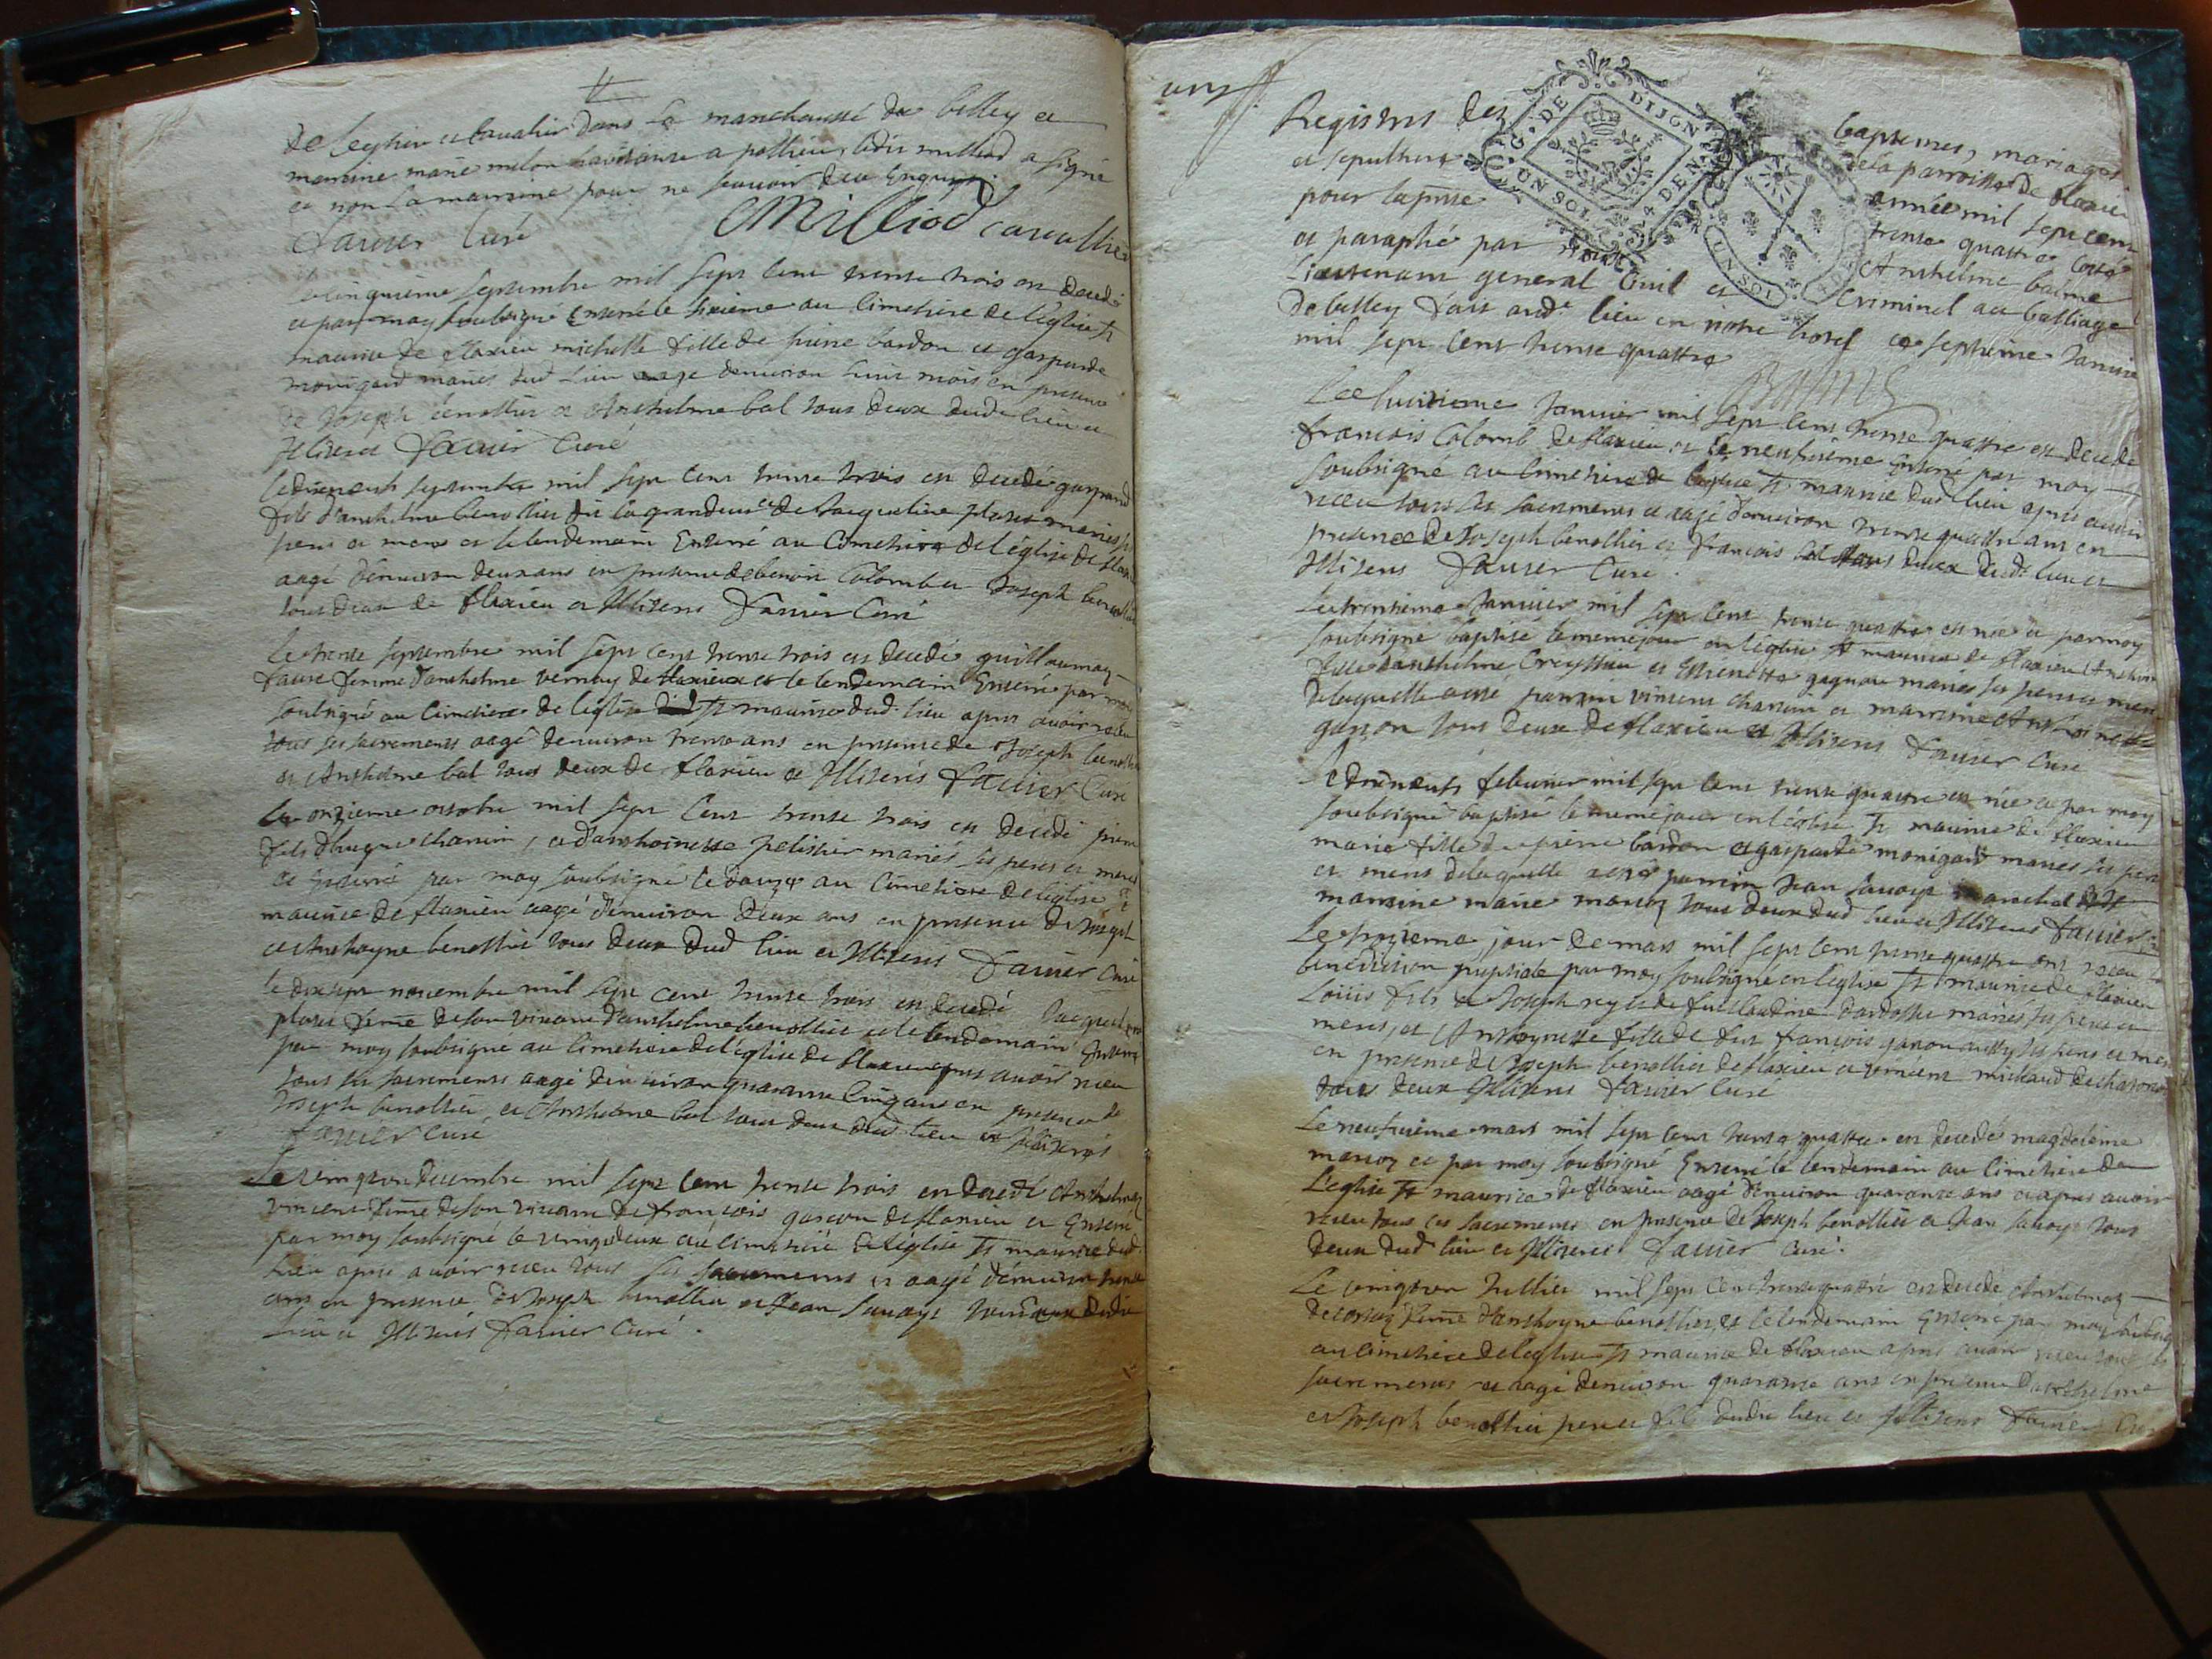 de leglise et cavalier dans la marechaussé de belley et
marraine marie melon havitante a pollieu, ledit milliod a signé
et non la marraine pour ne scavoir dece Enquise
favier Curé CMilliod cavallier
Le cinquieme septembre mil sept cent trente trois est decedé
et par moy soubsigné Enterré le sixieme au cimetiere de l'eglise St
maurice de flaxieu michelle fille de pierre bardon et gasparde
monigard mariés dud lieu aagé denviron huit mois en presence
de Joseph benollier et Anthelme bal tous deux dudt lieu et
Illiteres favier Curé
le dixneuf septembre mil sept cent trente trois est decedé gaspard
fils d'anthelme benollier dit la grandeur et de Jacqueline plasse mariés ses
peres et meres et le lendemain Enterré au Cimetiere de l'église de flaxieu
aagé d'environ deux ans en presence de benoit Colomb et Joseph benollier
tous deux de flaxieu et Illiteres favier Curé
Le trente septembre mil sept cent trente trois est decedé guillaumaz
faure femme d'anthelme vernay de flaxieux et le lendemain Enterré par moy
soubsigné au Cimetiere de leglise St maurice dud. lieu apres avoir receu
tous ses sacrements aagé denviron trente ans en presence de Joseph benollier
et Anthelme bal tous deux de flaxieu et Illiterés favier Curé
Le onzieme octobre mil sept Cent trente trois est decedé pierre
fils d'hugue chanin, et d'anthoinette pelissier mariés ses peres et meres
et enterré par moy soubsigné le douze au Cimetiere de leglise St
maurice de flaxieu aagé d'environ deux ans en presence de Joseph
et Anthoyne benollier tous deux dud lieu et Illiterés favier Curé
le dixsept novembre mil sept cent trente trois est decedé Jacqueline
plasse feme de son vivant d'anthelme benollier et le lendemain Enterré
par moy soubsigné au Cimetiere de l'église de flaxieu apres avoir receu
tous ses sacrements aagé d'environ quarante cinq ans en presence de
Joseph benollier et Anthelme bal tous deux dud lieu et Illiterés
favier curé
Le vingtun decembre mil sept cent trente trois est decedé Anthelmaz
vincent feme de son vivant de francois garson de flaxieu et Enterré
par moy soubsigné le vingtdeux au cimetiere de l'église St maurice dud.
lieu apres avoir receu tous ses sacrements et aagé d'environ trente
ans en presence de Joseph benollier et Jean savoye tous deux dudit
lieu et Illiterés favier Curé.
Registres des baptemes, mariages
et sepultures de la parroisse de flaxieu
pour la pnte année mil sept cent
trente quattre Cotté
et paraphé par nous Anthelme balme
Lieutenant general Civil et Criminel au balliage
de belley fait aud. lieu en notre hotel ce septieme Janvier
mil sept cent trente quattre
Balme
G. DE DIJON
UN SOL 4 DEN.
UN SOL
Le huitieme Janvier mil sept cent trente quattre est decedé
francois Colomb de flaxieu et le neufvieme Enterré par moy
soubsigné au Cimetiere de leglise St maurice dud lieu apres avoir
receu tous ses sacrements et aagé d'environ trente quattre ans en
presence de Joseph benollier et francois bal tous deux dudt. lieu et
Illiterés favier Curé.
Le trentieme Janvier mil sept cent trente quattre est née et par moy
soubsigné baptisé le meme jour en l'église St maurice de flaxieu
fille d'anthelme Creyssieu et mariés ses peres et meres
de laquelle a esté parrain vincent chanin et marraine Anthoinette
garson tous deux de flaxieu et Illiterés favier Curé
Le dixneufv febvrier mil sept cent trente quattre est née et par moy
soubsigné baptisé le meme jour en l'église St maurice de flaxieu
marie fille de pierre bardon et gasparde monigard mariés ses peres
et meres de laquelle a esté parrain Jean savoye marechal et
marraine marie tous deux dud lieu et Illiterés favier
Le jour de mars mil sept cent trente quattre ont receu la
benediction nuptiale par moy soubsigné en l'église St maurice de flaxieu
Louis fils de Joseph rey et de mariés ses peres et
meres, et Anthoynette fille de feu francois ses peres et meres
en presence de Joseph benollier de flaxieu et vincent michaud
tous deux Illiterés favier Curé
Le neufvieme mars mil sept cent trente quattre est decedé magdeleine
et par moy soubsigné Enterré le lendemain au Cimetiere de
L'eglise St maurice de flaxieu aagé d'environ quarante ans et apres avoir
receu tous ses sacrements en presence de Joseph benollier et Jean savoye tous
deux dud lieu et Illiteres favier Curé.
Le vingtun Juillet mil sept cent trente quattre est decedé Anthelmaz
feme d'anthoyne benollier, et le lendemain Enterré par moy soubsigné
au cimetiere de l'église St maurice de flaxieu apres avoir receu tous ses
sacrements et aagé denviron quarante ans en presence d'anthelme
et Joseph benollier pere et fils dudit lieu et Illiteres favier Curé